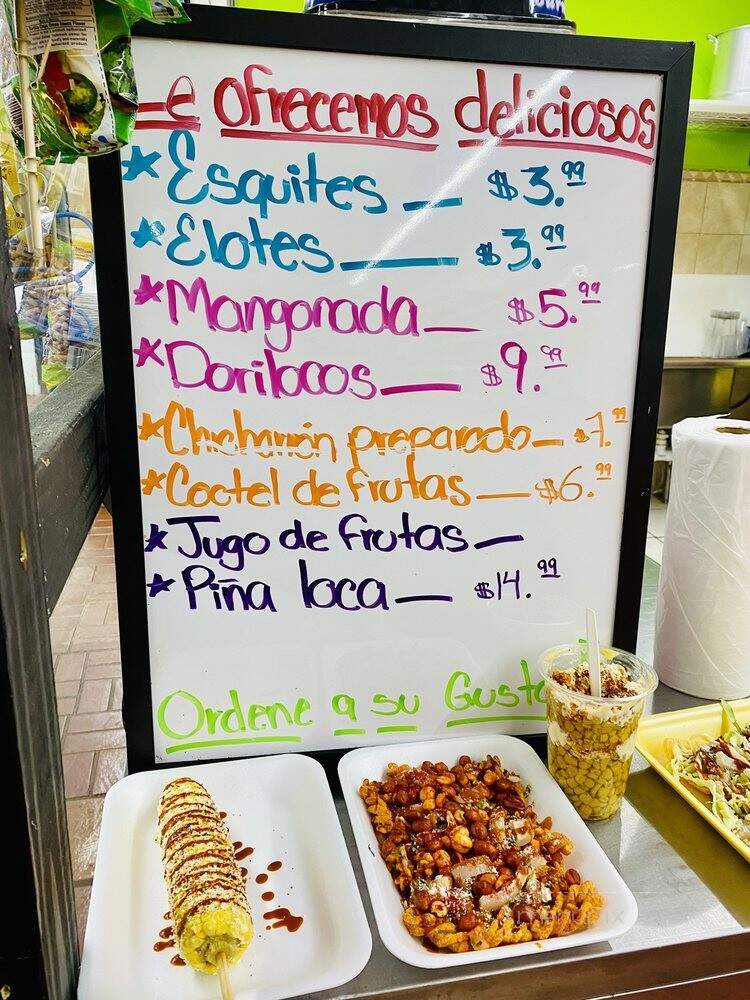 Le ofrecemos deliciosos
* Esquites $3.99
* Elotes $3.99
* Mangonada $5.99
* Dorilocos $9.99
* Chicharrón preparado $7.99
* Coctel de frutas $6.99
* Jugo de frutas
* Piña loca $14.99
Ordene a su Gusto